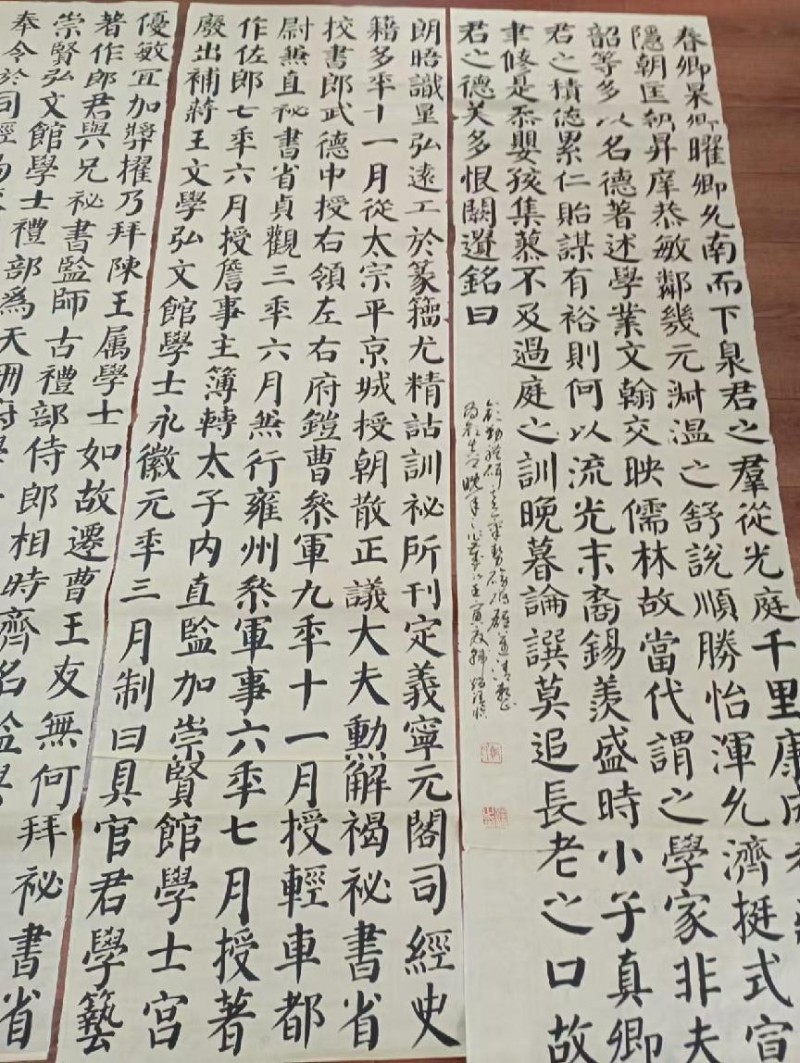 春卿杲卿曜卿允南而下息君之羣從光庭千里康成
隱朝匡朝昇庠恭敏鄰幾元淑溫之舒說順勝怡渾允濟挺式宣
韶等多以名德著述學業文翰交映儒林故當代謂之學家非夫
君之積德累仁貽謀有裕則何以流光末裔錫羨盛時小子真卿
聿修是忝嬰孩集蓼不及過庭之訓晚暮論譔莫追長老之口故
君之德美多恨闕遺銘曰
朗晤識量弘遠工於篆籀尤精詁訓祕所刊定義寧元閣司經史
籍多年十一月從太宗平京城授朝散正議大夫勳解褐祕書省
校書郎武德中授右領左右府鎧曹叅軍九年十一月授輕車都
尉兼直祕書省貞觀三年六月兼行雍州叅軍事六年七月授著
作佐郎七年六月授詹事主簿轉太子內直監加崇賢館學士宮
廢出補蔣王文學弘文館學士永徽元年三月制曰具官君學藝
優敏宜加獎擢乃拜陳王属學士如故遷曹王友無何拜祕書省
著作郎君與兄祕書監師古禮部侍郎相時齊名監與
崇賢弘文館學士禮部為天冊府學
奉令於司經局